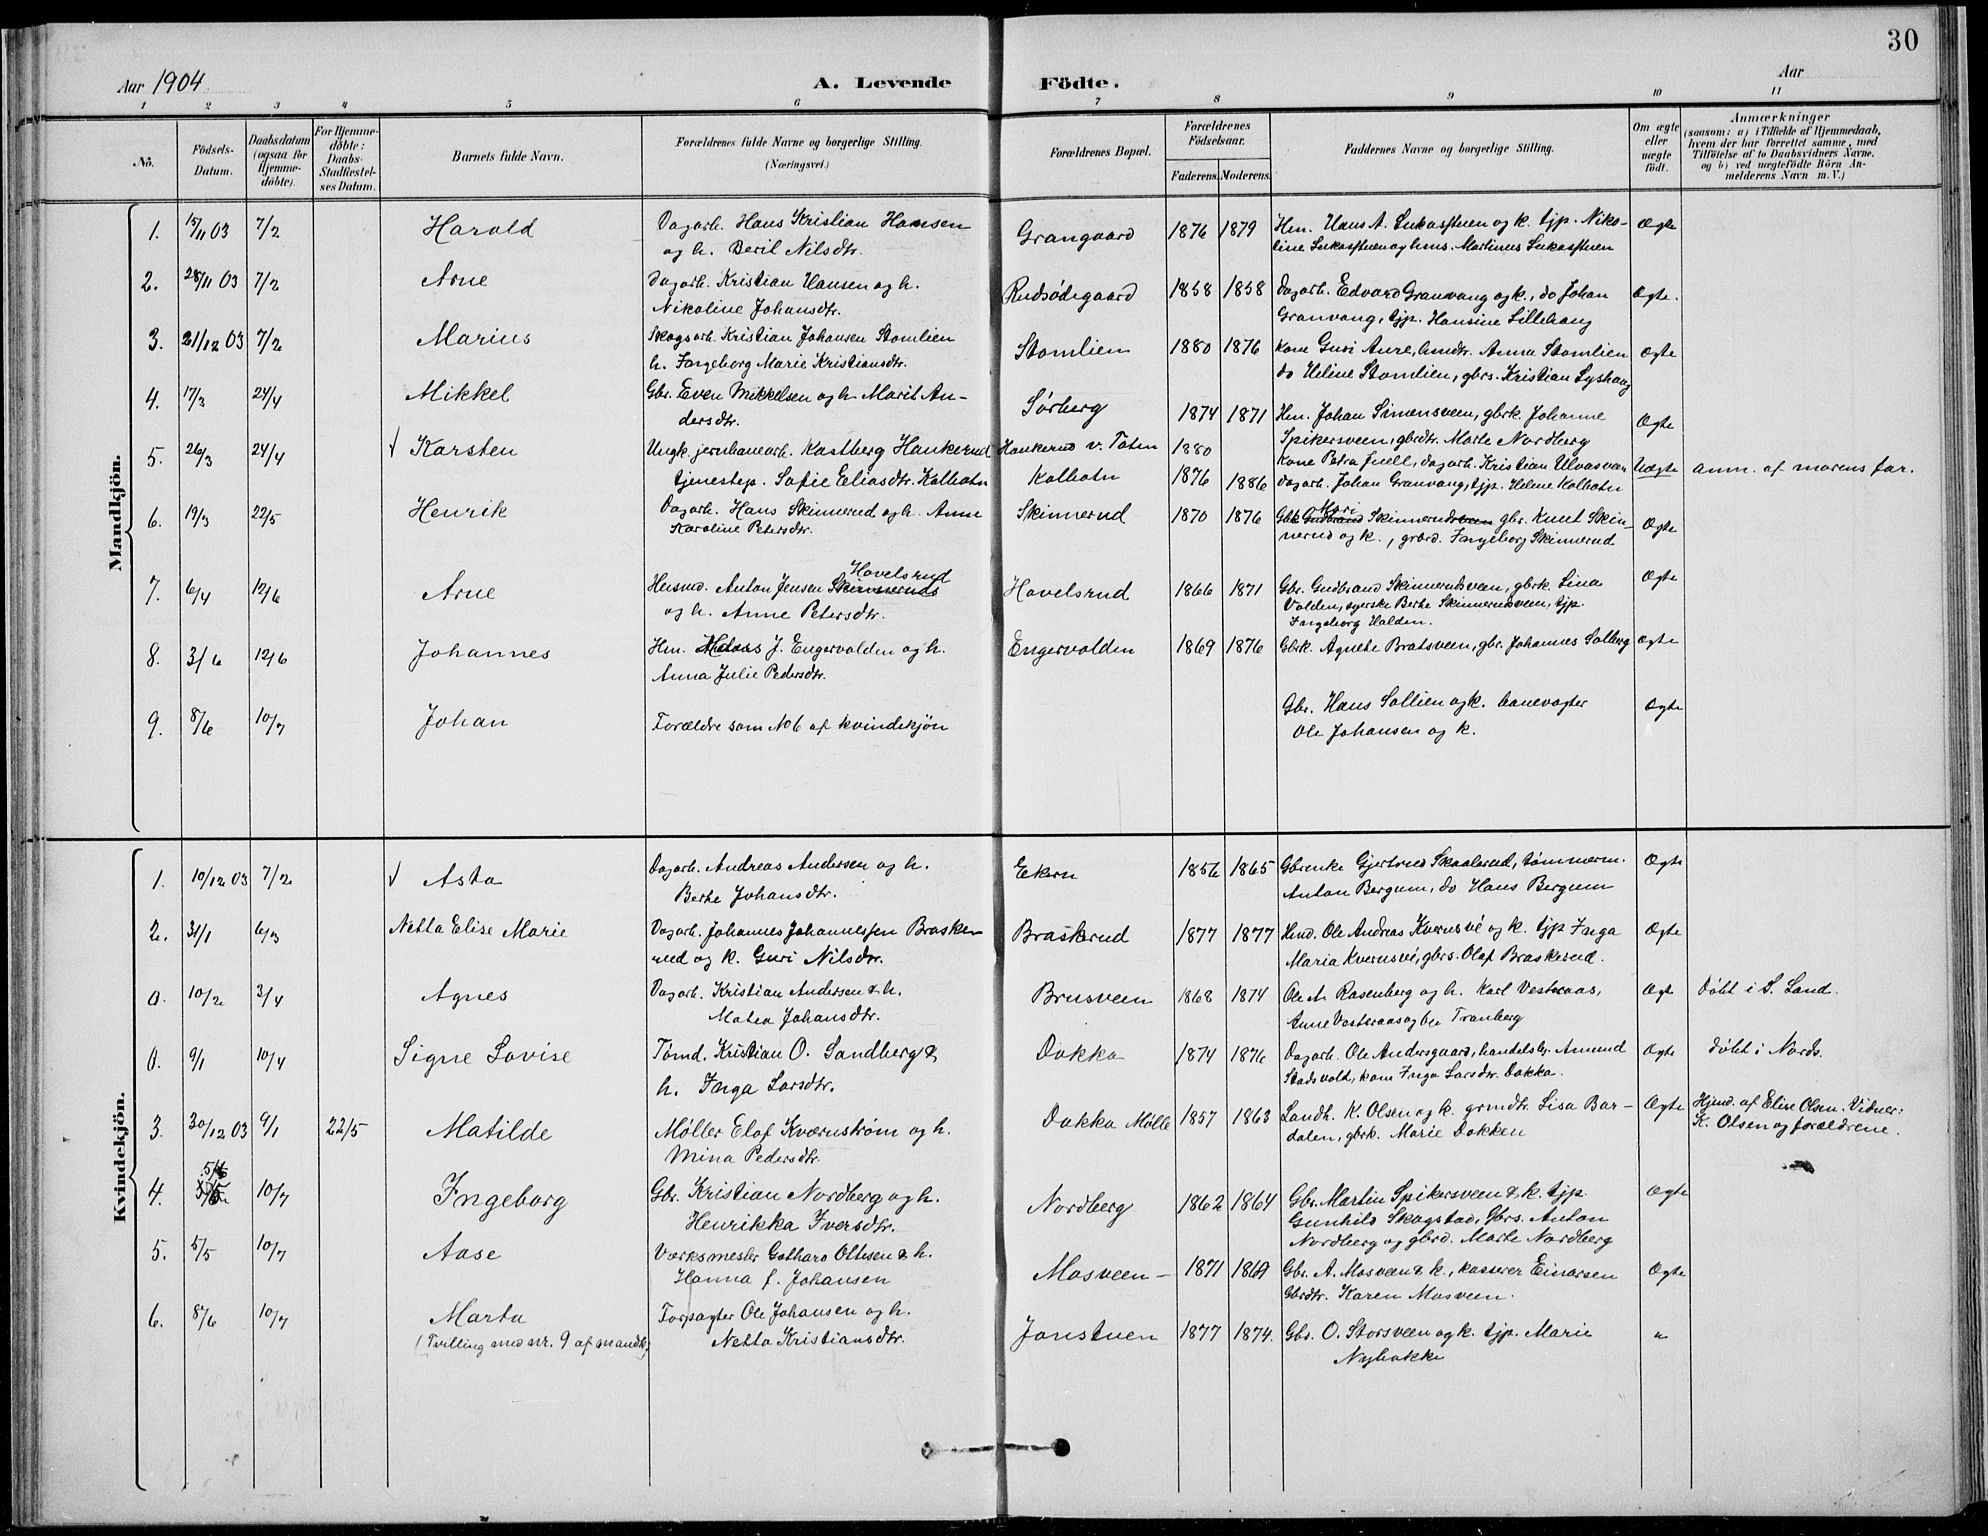 30
Aar 1904
A. Levende Födte.
Aar
1 2 3 4 5 6 7 8 9 10 11
No. Födsels-Datum. Daabsdatum (ogsaa for Hjemme-döbte). For Hjemme-döbte: Daabs-Stadfæstel-ses Datum. Barnets fulde Navn. Forældrenes fulde Navne og borgerlige Stilling. (Næringsvei.) Forældrenes Bopæl. Forældrenes Födselsaar. Faderens. Moderens. Faddernes Navne og borgerlige Stilling. Om ægte eller uægte födt. Anmærkninger (saasom: a) i Tilfælde af Hjemmedaab, hvem der har forrettet samme, med Tilföielse af to Daabsvidners Navne, og b) ved uægtefödte Börn An-melderens Navn m. V.)
Mandkjön.
1. 15/11 03 7/2 Harald Dagarb. Hans Kristian Hansen Grangaard 1876 1879 Hen. Hans A. Lukasstuen og k. tjp. Niko- Ægte
og h. Beril Nilsdtr. line Lukasstuen og hms. Martinus Lukasstuen
2. 28/11 03 7/2 Arne Dagarb. Kristian Hansen og h. Rudsødegaard 1858 1858 Dagarb. Edvard Granvang og k., do Johan Ægte.
Nikoline Johansdtr. Granvang, tjp. Hansine Lillehaug
3. 21/12 03 7/2 Marius Skogsarb. Kristian Johansen Stomlien Stomlien 1880 1876 Kone Guri Aure, hmdtr. Anna Stomlien Ægte
h. Ingeborg Marie Kristiansdtr. do Heline Stomlien, gbrs. Kristian Lyshaug
4. 17/3 24/4 Mikkel Gbr. Even Mikkelsen og h. Marit An- Sørberg 1874 1871 Hen. Johan Simensveen, gbrk. Johanne Ægte
dersdtr. Spikersveen, gbrdtr. Marte Nordberg
5. 26/3 24/4 Karsten Ungk. jernbanearb. Kastberg Hankerud Hankerud v. Toten 1880 Kone Petra Juell, dagarb. Kristian Ulvasveen Uægte anm. af morens far.
tjenestep. Sofie Eliasdtr. Kolbotn Kolbotn 1876 1886 Dagarb. Johan Granvang, tjp. Helene Kolbotn
6. 19/3 22/5 Henrik Dagarb. Hans Skinnerud og h. Anne Skinnerud 1870 1876 Gbk Gudbrand Mari Skinnerudsveen gbr. Knut Skin- Ægte
Karoline Petersdtr. nerud og k., grbrd. Ingeborg Skinnerud
7. 6/4 12/6 Arne Husmd. Anton Jensen Skinnerud Hovelsrud Hovelsrud 1866 1871 Gbr. Gudbrand Skinnerudsveen, gbrk. Lina Ægte
og h. Anne Petersdtr. Volden, syerske Berte Skinnerudsveen, tjp.
Ingeborg Halden.
8. 3/6 12/6 Johannes Hen. J. Engervolden og h. Engervolden 1869 1876 Gbrk. Agnete Bratsveen, gbr. Johannes Solberg Ægte
Anna Julie Pedersdtr.
9. 8/6 10/7 Johan Forældre som No 6 af kvindekjøn Gbr. Hans Sollien og k. banevogter Ægte
Ole Johansen og k.
Kvindekjön.
1. 10/12 03 7/2 Asta Dagarb. Andreas Andersen og h. Ekern 1856 1865 Gbrenke Gjertrud Skaalerud, tømmerm. Ægte
Berte Johansdtr. Anton Bergum, do Hans Bergum
2. 31/1 6/3 Netta Elise Marie Dagarb. Johannes Johannessen Brasker- Braskerud 1877 1877 Hmd. Ole Andreas Kvernsvé og k. tjp Inga Ægte
rud og k. Guri Nilsdtr. Maria Kvernsvé, gbrs. Olaf Braskerud.
0. 10/2 3/4 Agnes Dagarb. Kristian Andersen & h. Brusveen 1868 1874 Ole A. Rosenberg og h. Karl Vestraas, Ægt Døbt i S. Land.
Matea Johansdtr. Anne Vestraas og Tranberg
0. 9/1 10/4 Signe Lovise Tømd. Kristian O. Sandberg & Dokka 1874 1876 Dagarb. Ole Andersgaard, handelsbr. Amund Ægte døbt i Nords.
h. Inga Larsdtr. Stadsvolt, kone Inga Larsdtr. Dokka.
3. 30/12 03 9/1 22/5 Matilde Møller Elof Kværnstrøm og h. Dokka Mølle 1857 1863 Landh. K. Olsen og k. grmdtr. Lisa Bar- Ægte Hjmd. af Elise Olsen. Vidner:
Mina Pedersdtr. dalen, gbrk. Marie Dokken K. Olsen og forældrene.
4. 5/6 10/7 Ingeborg Gbr. Kristian Nordberg og h. Nordberg 1862 1864 Gbr. Martin Spikersveen & k. tjp Ægte
Henrikka Iversdtr. Gunhild Skogstad, Gbrs. Anton
Nordberg og gbrd. Marte Nordberg
5. 5/5 10/7 Aase Værksmester Gothard Oltesen & h. Mosveen 1871 1869 Gbr. A. Mosveen & k., kasserer Einarsen Ægte
Hanna f. Johansen Gbrdtr. Karen Mosveen.
6. 8/6 10/7 Marta Forpagter Ole Johansen og h. Jonstuen 1877 1874. Gbr. O. Storsveen og k. tjp. Marie "
(Tvilling med nr. 9 af mandk) Netta Kristiansdtr. Nybakke